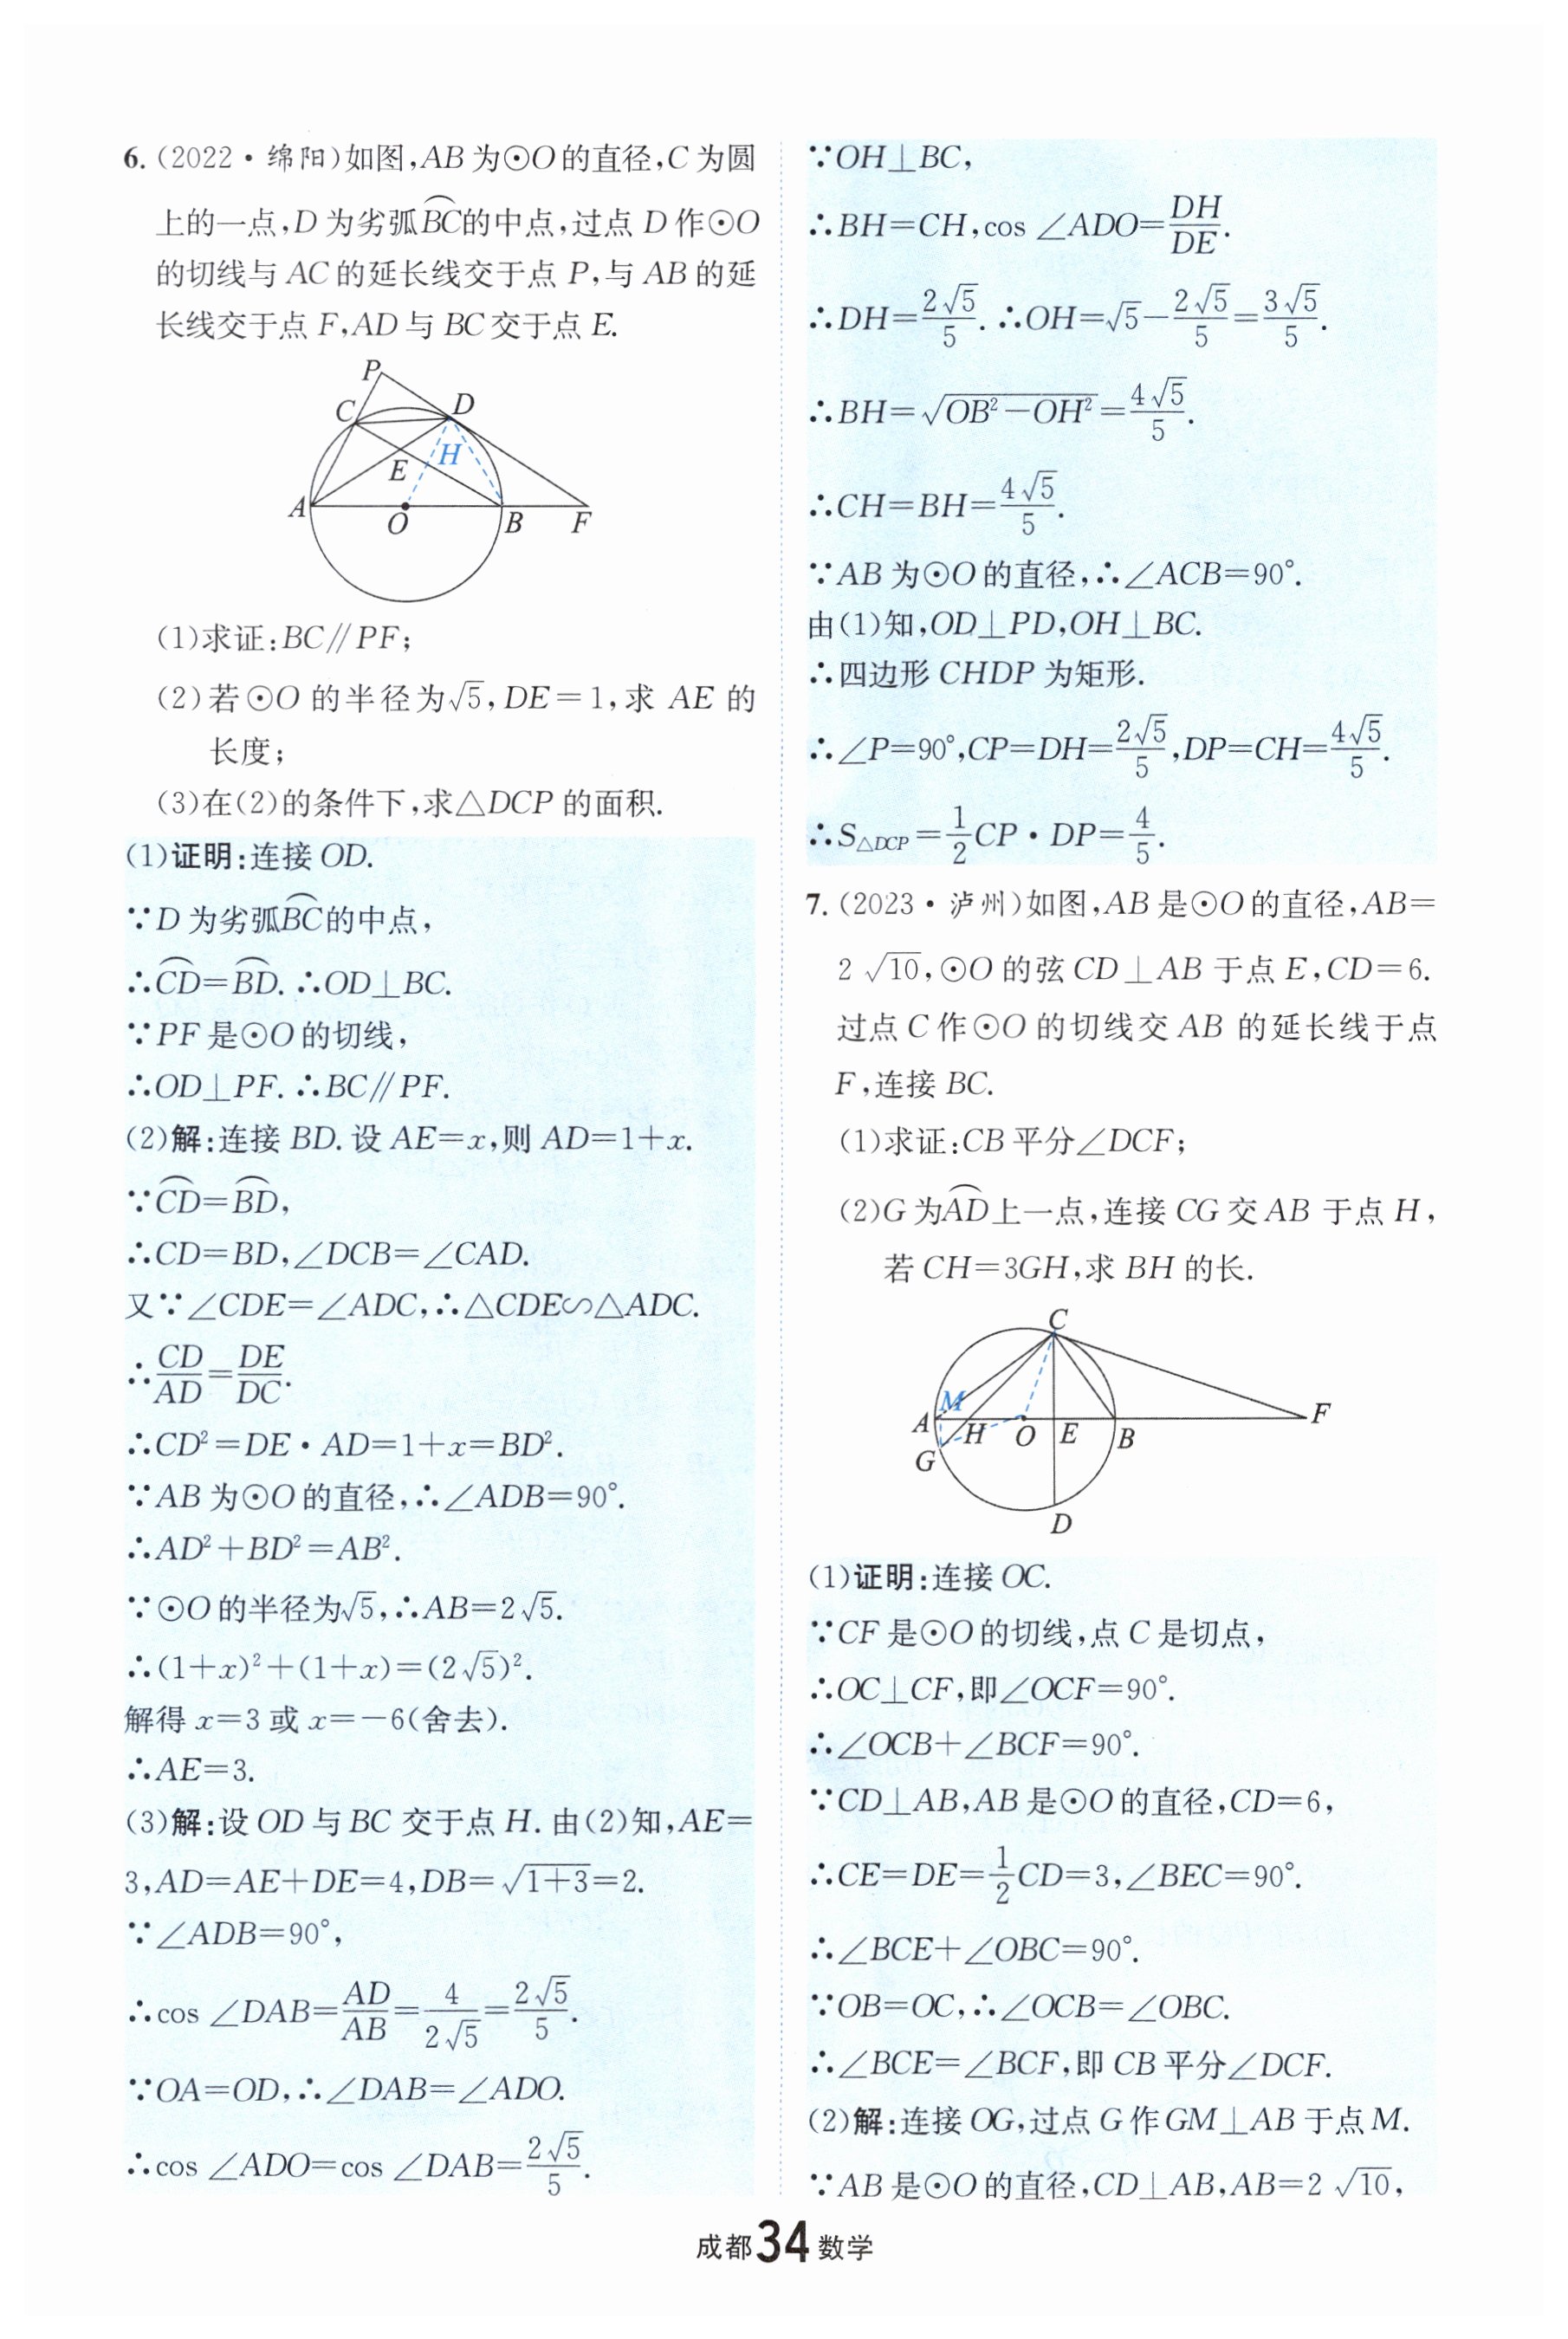 6. (2022·绵阳)如图,AB为⊙O的直径,C为圆
上的一点,D为劣弧BC⌒的中点,过点D作⊙O
的切线与AC的延长线交于点P,与AB的延
长线交于点F,AD与BC交于点E.
P
C
D
H
E
A
O
B
F
(1)求证:BC∥PF;
(2)若⊙O的半径为√5,DE=1,求AE的
长度;
(3)在(2)的条件下,求△DCP的面积.
(1)证明:连接OD.
∵D为劣弧BC⌒的中点,
∴CD⌒=BD⌒.∴OD⊥BC.
∵PF是⊙O的切线,
∴OD⊥PF.∴BC∥PF.
(2)解:连接BD.设AE=x,则AD=1+x.
∵CD⌒=BD⌒,
∴CD=BD,∠DCB=∠CAD.
又∵∠CDE=∠ADC,∴△CDE∽△ADC.
∴CD/AD=DE/DC.
∴CD²=DE·AD=1+x=BD².
∵AB为⊙O的直径,∴∠ADB=90°.
∴AD²+BD²=AB².
∵⊙O的半径为√5,∴AB=2√5.
∴(1+x)²+(1+x)=(2√5)².
解得x=3或x=-6(舍去).
∴AE=3.
(3)解:设OD与BC交于点H.由(2)知,AE=
3,AD=AE+DE=4,DB=√(1+3)=2.
∵∠ADB=90°,
∴cos ∠DAB=AD/AB=4/(2√5)=2√5/5.
∵OA=OD,∴∠DAB=∠ADO.
∴cos ∠ADO=cos ∠DAB=2√5/5.
∵OH⊥BC,
∴BH=CH,cos ∠ADO=DH/DE.
∴DH=2√5/5.∴OH=√5-2√5/5=3√5/5.
∴BH=√(OB²-OH²)=4√5/5.
∴CH=BH=4√5/5.
∵AB为⊙O的直径,∴∠ACB=90°.
由(1)知,OD⊥PD,OH⊥BC.
∴四边形CHDP为矩形.
∴∠P=90°,CP=DH=2√5/5,DP=CH=4√5/5.
∴S△DCP=1/2CP·DP=4/5.
7. (2023·泸州)如图,AB是⊙O的直径,AB=
2√10,⊙O的弦CD⊥AB于点E,CD=6.
过点C作⊙O的切线交AB的延长线于点
F,连接BC.
(1)求证:CB平分∠DCF;
(2)G为AD⌒上一点,连接CG交AB于点H,
若CH=3GH,求BH的长.
C
M
A
H
O
E
B
F
G
D
(1)证明:连接OC.
∵CF是⊙O的切线,点C是切点,
∴OC⊥CF,即∠OCF=90°.
∴∠OCB+∠BCF=90°.
∵CD⊥AB,AB是⊙O的直径,CD=6,
∴CE=DE=1/2CD=3,∠BEC=90°.
∴∠BCE+∠OBC=90°.
∵OB=OC,∴∠OCB=∠OBC.
∴∠BCE=∠BCF,即CB平分∠DCF.
(2)解:连接OG,过点G作GM⊥AB于点M.
∵AB是⊙O的直径,CD⊥AB,AB=2√10,
成都34数学